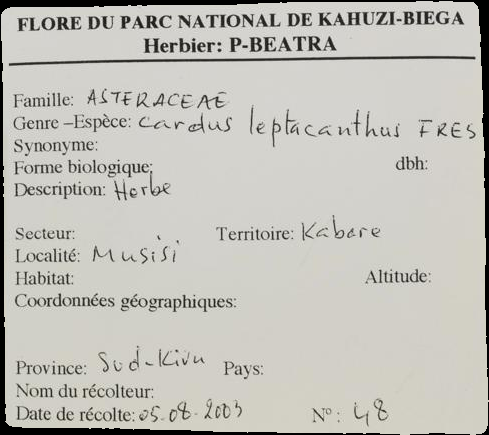 FLORE DU PARC NATIONAL DE KAHUZI-BIEGA
Herbier: P-BEATRA
Famille: ASTERACEAE
Genre –Espèce: Cardus leptacanthus FRES
Synonyme:
Forme biologique: dbh:
Description: Herbe
Secteur: Territoire: Kabare
Localité: Musisi
Habitat: Altitude:
Coordonnées géographiques:
Province: Sud-Kivu Pays:
Nom du récolteur:
Date de récolte: 05.08.2003 N°: 48